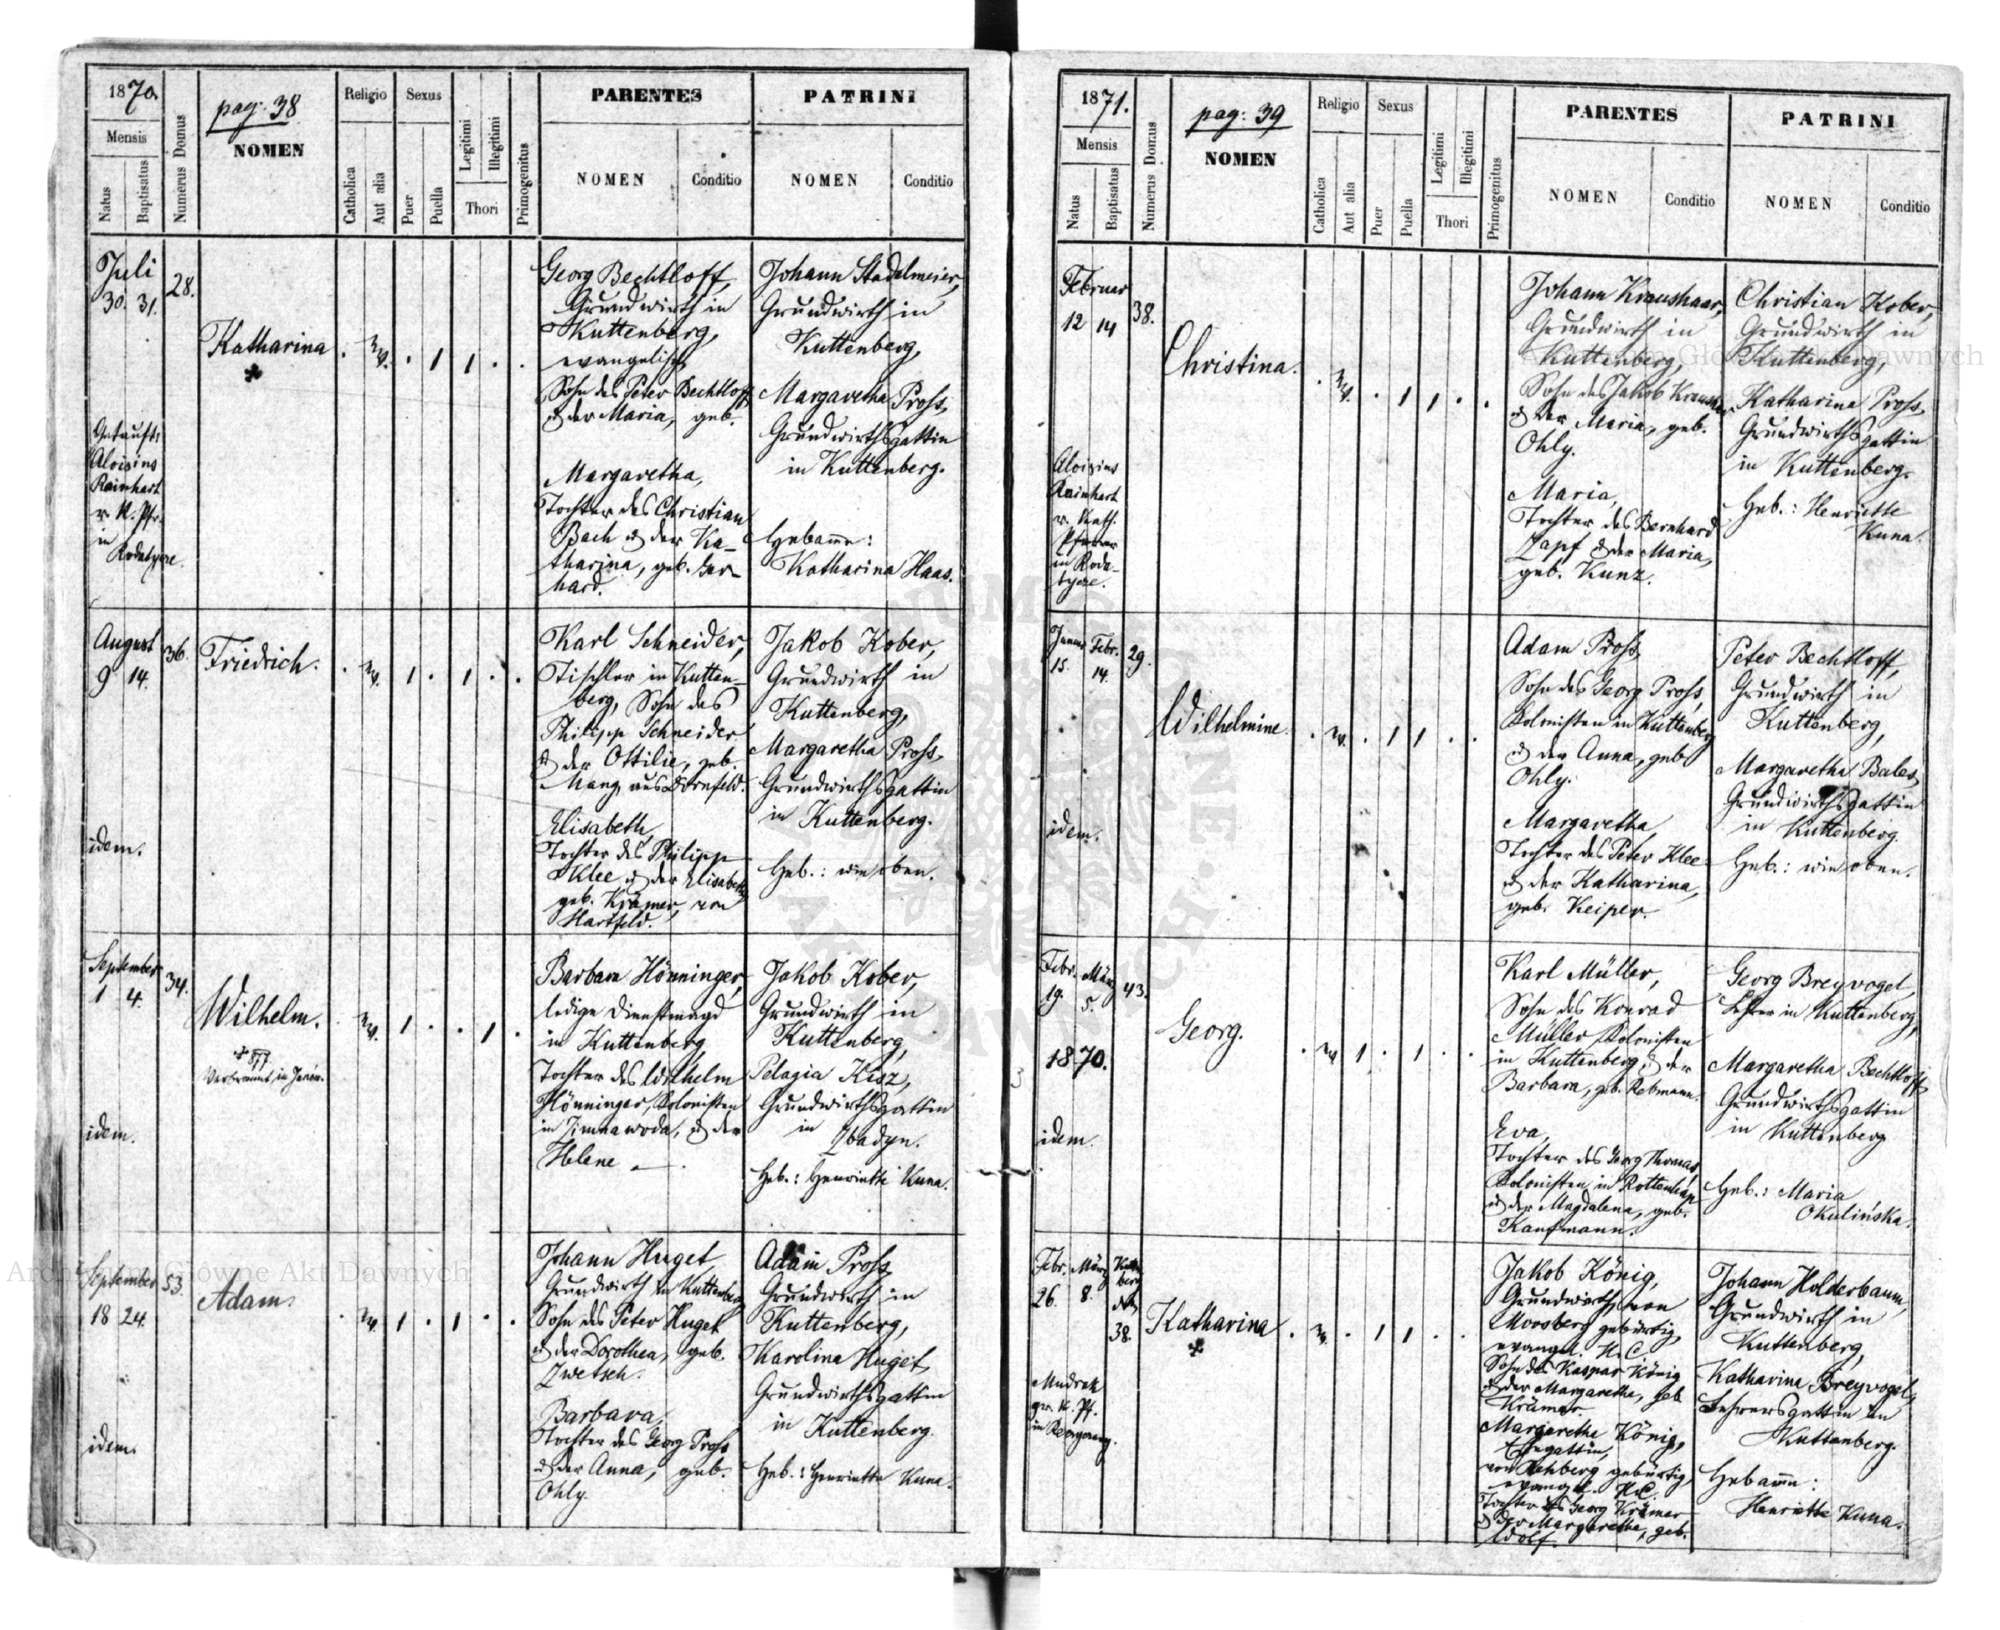 1870.
pag: 38
NOMEN
Religio
Sexus
PARENTES
PATRINI
Mensis
Natus
Baptisatus
Numerus Domus
Catholica
Aut alia
Puer
Puella
Legitimi
Illegitimi
Thori
Primogenitus
NOMEN
Conditio
NOMEN
Conditio
Juli
30. 31.
28.
Katharina
ev.
Georg Bechtloff,
Grundwirth in
Kuttenberg,
evangelisch
Sohn des Peter Bechtloff
u. der Maria, geb.
Margaretha,
Tochter des Christian
Bach u. der Ka-
tharina, geb. Ger-
hard.
Johann Stadelmeier,
Grundwirth in
Kuttenberg,
Margaretha Pross,
Grundwirthsgattin
in Kuttenberg.
Hebamme:
Katharina Haas.
Getauft:
Aloisius
Rainhart
r. K. Pfr.
in
Rodatycze.
August
9 14.
36.
Friedrich.
ev.
Karl Schneider,
Tischler in Kutten-
berg, Sohn des
Philipp Schneider
u. der Ottilie, geb.
Mang aus Dornfeld.
Elisabeth,
Tochter des Philipp
Klee u. der Elisabeth
geb. Krämer, von
Hartfeld.
Jakob Kober,
Grundwirth in
Kuttenberg,
Margaretha Pross,
Grundwirthsgattin
in Kuttenberg.
Heb.: wie oben.
idem.
September
1 4.
34.
Wilhelm.
† 877
Verbrannt in Janów.
ev.
Barbara Hönninger,
ledige Dienstmagd
in Kuttenberg
Tochter des Wilhelm
Hönninger, Kolonisten
in Zimnawoda, u. der
Helene –.
Jakob Kober,
Grundwirth in
Kuttenberg,
Pelagia Kisz,
Grundwirthsgattin
in Zbadyn.
Heb.: Henriette Kuna.
idem.
September
18 24.
53.
Adam.
ev.
Johann Huget,
Grundwirth in Kuttenberg
Sohn des Peter Huget
u. der Dorothea, geb.
Zwetsch.
Barbara,
Tochter des Georg Pross
u. der Anna, geb.
Ohly.
Adam Pross,
Grundwirth in
Kuttenberg,
Karolina Huget,
Grundwirthsgattin
in Kuttenberg.
Heb.: Henriette Kuna.
idem.
1871.
pag: 39
NOMEN
Religio
Sexus
PARENTES
PATRINI
Mensis
Natus
Baptisatus
Numerus Domus
Catholica
Aut alia
Puer
Puella
Legitimi
Illegitimi
Thori
Primogenitus
NOMEN
Conditio
NOMEN
Conditio
Februar
12 14
38.
Christina.
ev.
Johann Kraushaar,
Grundwirth in
Kuttenberg,
Sohn des Jakob Kraushaar
u. der Maria, geb.
Ohly.
Maria,
Tochter des Bernhard
Zapf u. der Maria,
geb. Kunz.
Christian Kober,
Grundwirth in
Kuttenberg,
Katharina Pross,
Grundwirthsgattin
in Kuttenberg.
Heb.: Henriette
Kuna.
Aloisius
Rainhart
r. Kath.
Pfarrer
in Roda-
tycze.
Januar Febr.
15. 14.
29.
Wilhelmine.
ev.
Adam Pross,
Sohn des Georg Pross,
Kolonisten in Kuttenberg
u. der Anna, geb.
Ohly.
Margaretha,
Tochter des Peter Klee
u. der Katharina,
geb. Keiper.
Peter Bechtloff,
Grundwirth in
Kuttenberg,
Margaretha Bales,
Grundwirthsgattin
in Kuttenberg.
Heb.: wie oben.
idem.
Febr. März
19. 5.
43.
1870.
Georg.
ev.
Karl Müller,
Sohn des Konrad
Müller, Kolonisten
in Kuttenberg, u. der
Barbara, geb. Rebmann.
Eva,
Tochter des Georg Thomas,
Kolonisten in Rottenhan
u. der Magdalena, geb.
Kaufmann.
Georg Breyvogel,
Lehrer in Kuttenberg,
Margaretha Bechtloff
Grundwirthsgattin
in Kuttenberg
Heb.: Maria
Okulińska.
idem.
Febr. März
26. 8.
38.
Katharina
Jakob König,
Grundwirth, von
Moosberg gebürtig,
evangel. H.C.
Sohn des Kaspar König
u. der Margaretha, geb.
Krämer.
Margaretha König,
Ehegattin,
von Rehberg gebürtig,
evangel. H.C.
Tochter des Georg Krämer
u. der Margaretha, geb.
Wolf.
Johann Holderbaum,
Grundwirth in
Kuttenberg,
Katharina Breyvogel,
Lehrersgattin in
Kuttenberg.
Hebamme:
Henriette Kuna.
gr. K. Pf.
Archiwum Główne Akt Dawnych
Archiwum Główne Akt Dawnych